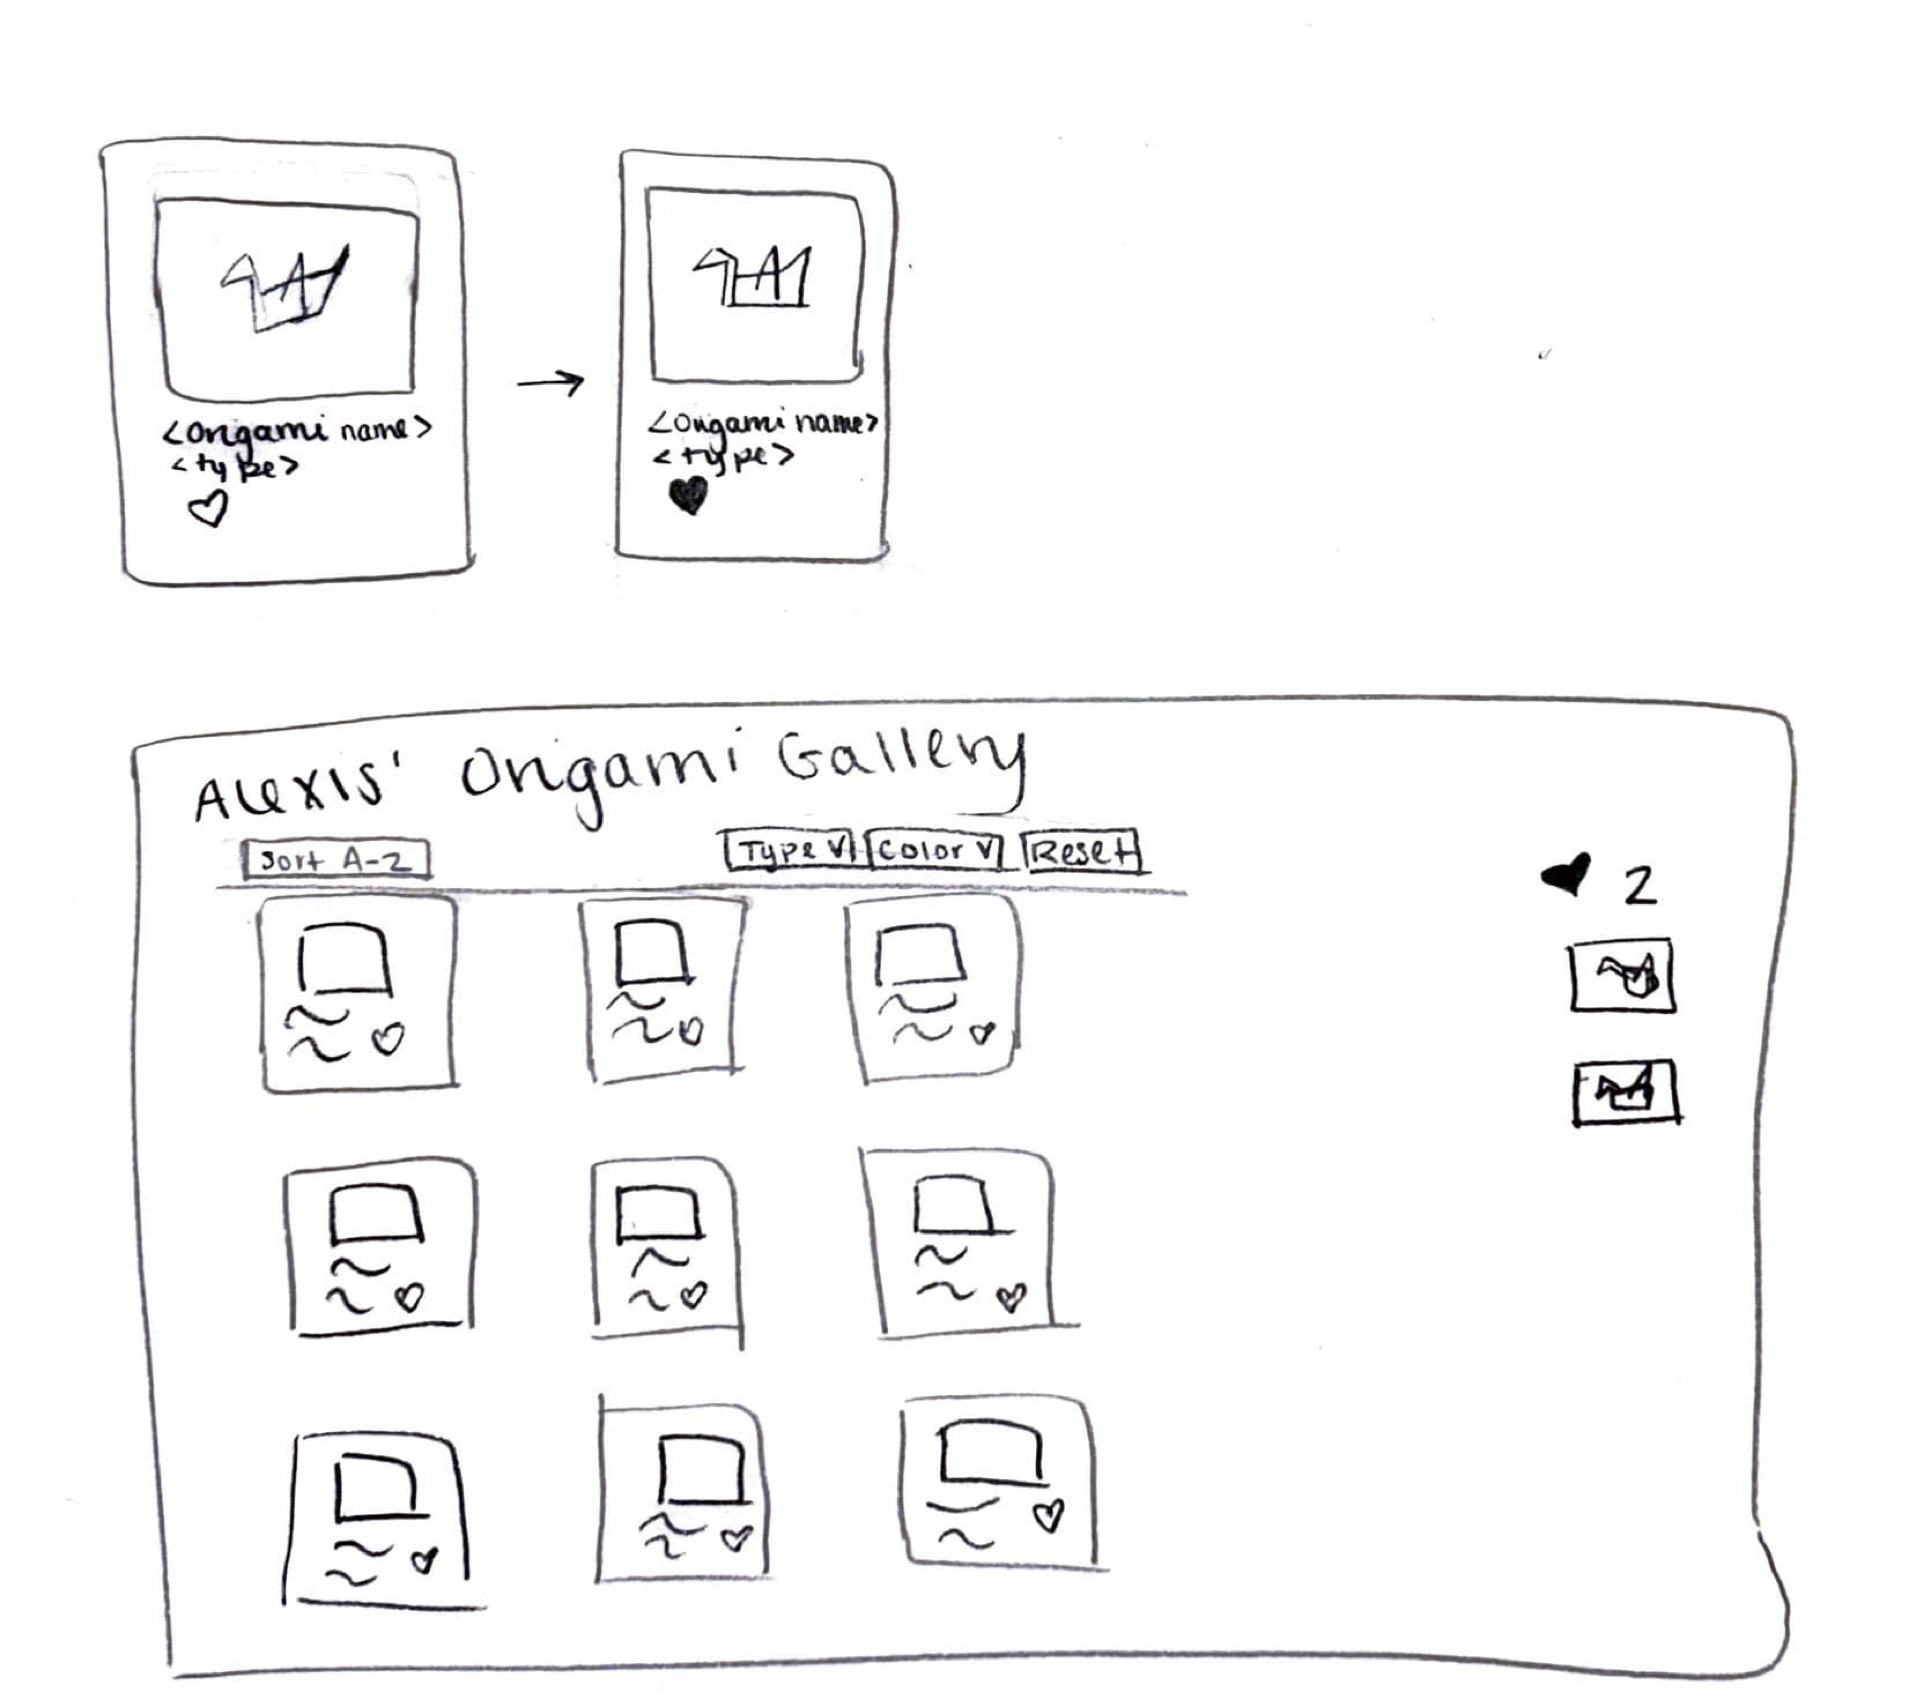 <origami name>
<type>
<origami name>
<type>
Alexis' Origami Gallery
Sort A-Z
Type V
Color V
Reset
2